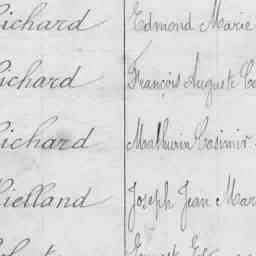 Richard Edmond Marie
Richard François Auguste
Richard Mathurin Casimir
Rielland Joseph Jean Mar